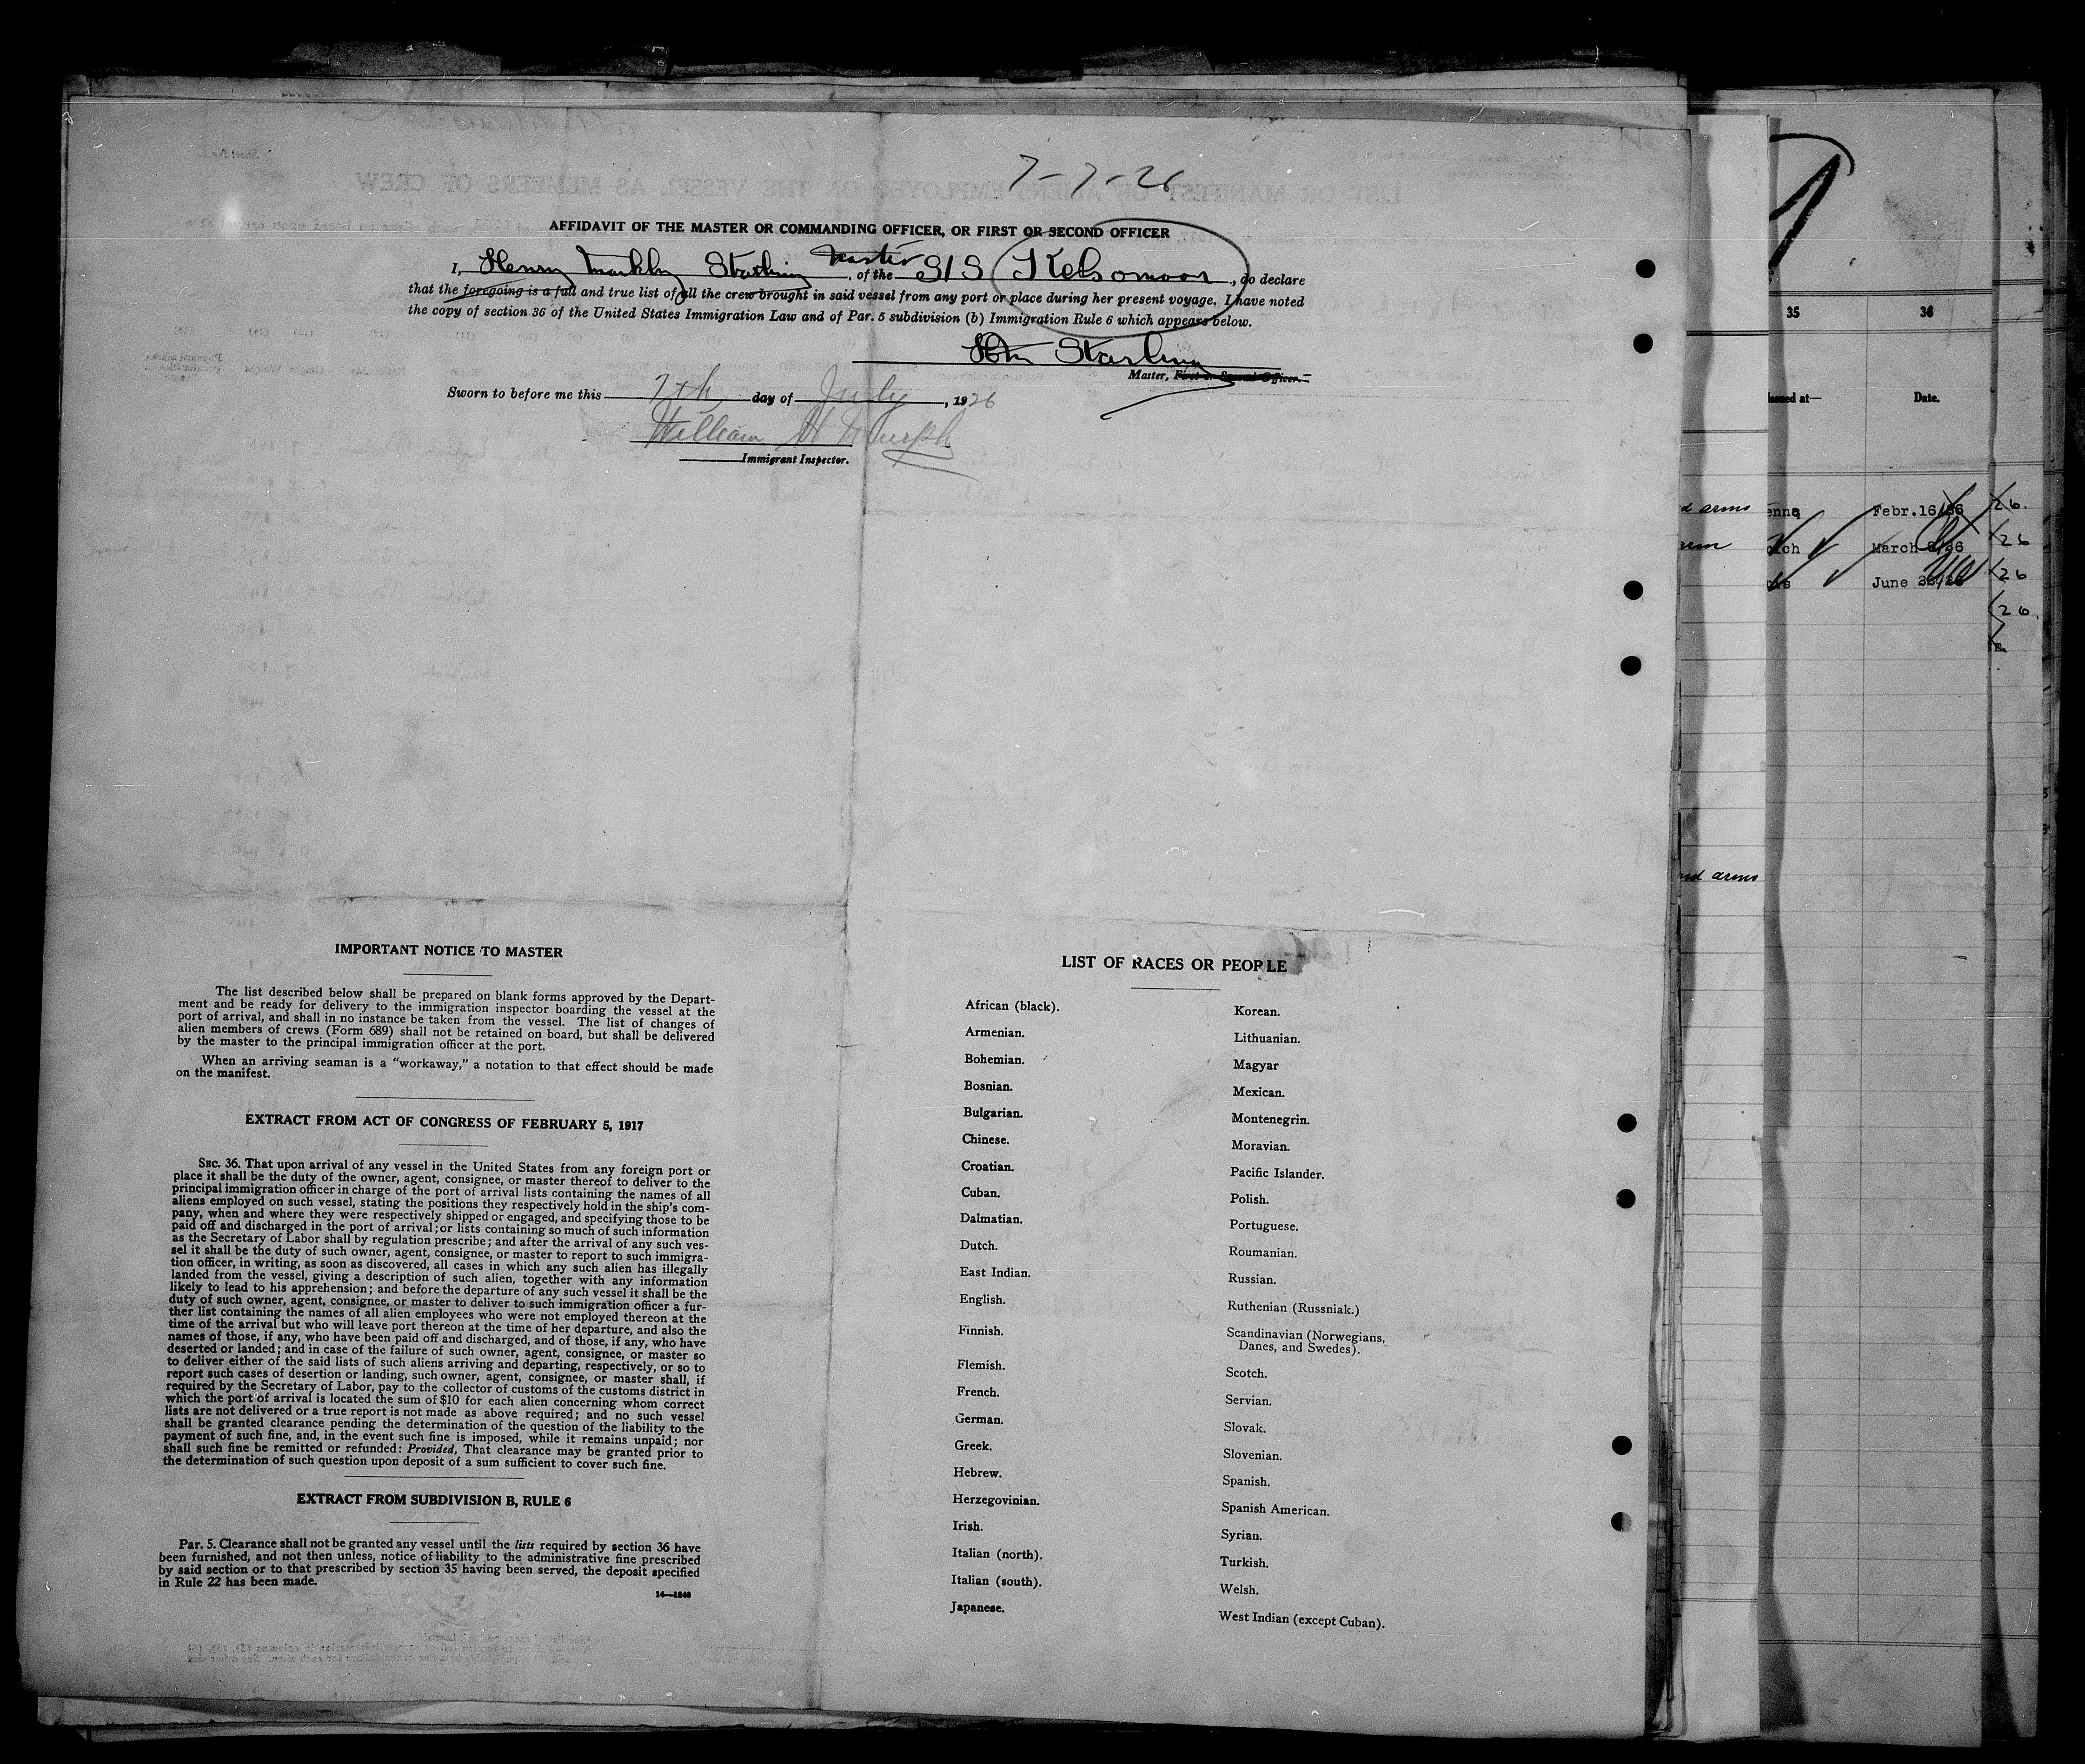 7-7-26
AFFIDAVIT OF THE MASTER OR COMMANDING OFFICER, OR FIRST OR SECOND OFFICER
I, Henry Starling Master, of the S/S Kelsomoor, do declare
that the foregoing is a full and true list of all the crew brought in said vessel from any port or place during her present voyage. I have noted
the copy of section 36 of the United States Immigration Law and of Par. 5 subdivision (b) Immigration Rule 6 which appears below.
Starling
Master, First or Second Officer.
Sworn to before me this 7th day of July, 1926
William H Murph
Immigrant Inspector.
IMPORTANT NOTICE TO MASTER
The list described below shall be prepared on blank forms approved by the Depart-
ment and be ready for delivery to the immigration inspector boarding the vessel at the
port of arrival, and shall in no instance be taken from the vessel. The list of changes of
alien members of crews (Form 689) shall not be retained on board, but shall be delivered
by the master to the principal immigration officer at the port.
When an arriving seaman is a "workaway," a notation to that effect should be made
on the manifest.
EXTRACT FROM ACT OF CONGRESS OF FEBRUARY 5, 1917
SEC. 36. That upon arrival of any vessel in the United States from any foreign port or
place it shall be the duty of the owner, agent, consignee, or master thereof to deliver to the
principal immigration officer in charge of the port of arrival lists containing the names of all
aliens employed on such vessel, stating the positions they respectively hold in the ship's com-
pany, when and where they were respectively shipped or engaged, and specifying those to be
paid off and discharged in the port of arrival; or lists containing so much of such information
as the Secretary of Labor shall by regulation prescribe; and after the arrival of any such ves-
sel it shall be the duty of such owner, agent, consignee, or master to report to such immigra-
tion officer, in writing, as soon as discovered, all cases in which any such alien has illegally
landed from the vessel, giving a description of such alien, together with any information
likely to lead to his apprehension; and before the departure of any such vessel it shall be the
duty of such owner, agent, consignee, or master to deliver to such immigration officer a fur-
ther list containing the names of all alien employees who were not employed thereon at the
time of the arrival but who will leave port thereon at the time of her departure, and also the
names of those, if any, who have been paid off and discharged, and of those, if any, who have
deserted or landed; and in case of the failure of such owner, agent, consignee, or master so
to deliver either of the said lists of such aliens arriving and departing, respectively, or so to
report such cases of desertion or landing, such owner, agent, consignee, or master shall, if
required by the Secretary of Labor, pay to the collector of customs of the customs district in
which the port of arrival is located the sum of $10 for each alien concerning whom correct
lists are not delivered or a true report is not made as above required; and no such vessel
shall be granted clearance pending the determination of the question of the liability to the
payment of such fine, and, in the event such fine is imposed, while it remains unpaid; nor
shall such fine be remitted or refunded: Provided, That clearance may be granted prior to
the determination of such question upon deposit of a sum sufficient to cover such fine.
EXTRACT FROM SUBDIVISION B, RULE 6
Par. 5. Clearance shall not be granted any vessel until the lists required by section 36 have
been furnished, and not then unless, notice of liability to the administrative fine prescribed
by said section or to that prescribed by section 35 having been served, the deposit specified
in Rule 22 has been made.
14—1240
LIST OF RACES OR PEOPLE
African (black).
Armenian.
Bohemian.
Bosnian.
Bulgarian.
Chinese.
Croatian.
Cuban.
Dalmatian.
Dutch.
East Indian.
English.
Finnish.
Flemish.
French.
German.
Greek.
Hebrew.
Herzegovinian.
Irish.
Italian (north).
Italian (south).
Japanese.
Korean.
Lithuanian.
Magyar
Mexican.
Montenegrin.
Moravian.
Pacific Islander.
Polish.
Portuguese.
Roumanian.
Russian.
Ruthenian (Russniak.)
Scandinavian (Norwegians,
Danes, and Swedes).
Scotch.
Servian.
Slovak.
Slovenian.
Spanish.
Spanish American.
Syrian.
Turkish.
Welsh.
West Indian (except Cuban).
35 36
Issued at— Date.
arms Febr. 16/26 26.
March 26
June 26
26.
arms